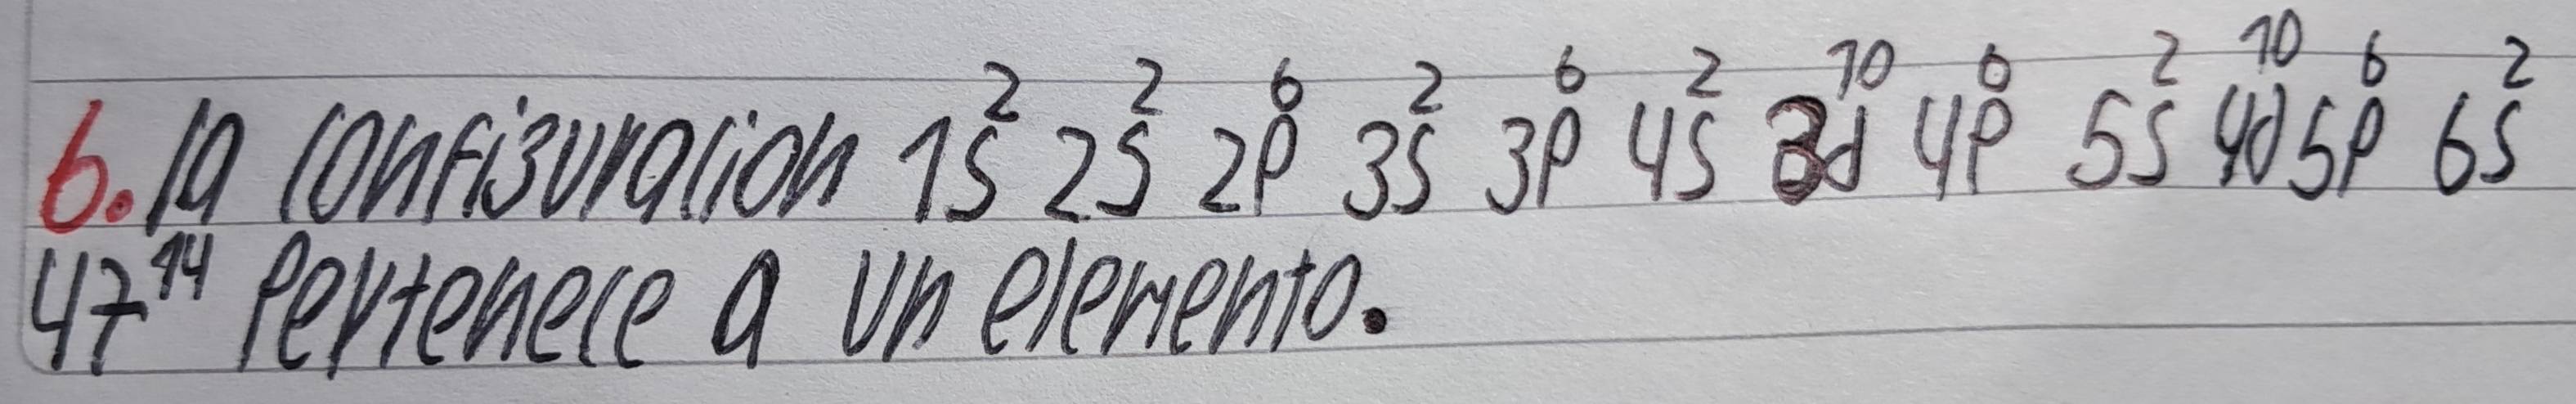 6. la configuracion 1s² 2s² 2p⁶ 3s² 3p⁶ 4s² 3d¹⁰ 4p⁶ 5s² 4d¹⁰ 5p⁶ 6s²
4f¹⁴ Pertenece a un elemento.